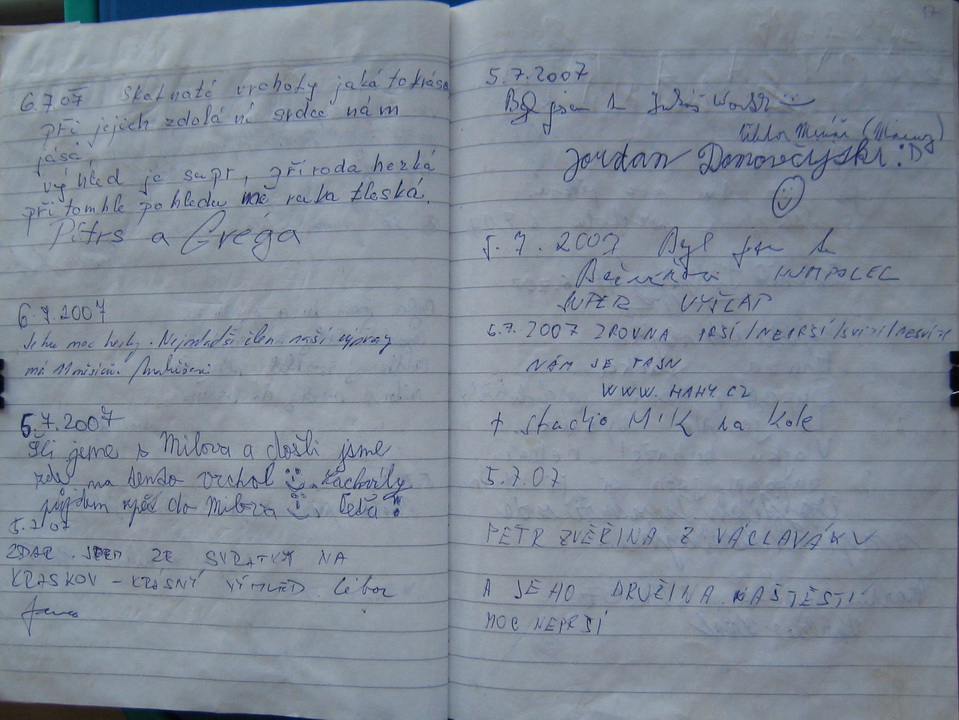 6.7.07 skalnaté vrcholy jaká to krása
při jejich zdolání srdce nám
jásá
výhled je supr, příroda hezká
při tomhle pohledu mě ruka tleská.
Pitrs a Gréga
6.7.2007
Je tu moc hezky. Nejmladší člen naší výpravy
má 11 měsíců.
5.7.2007
Šli jsme s Milova a došli jsme
zde na tento vrchol
půjdem zpět do Milova
5.7.07
ZDAR JSEM ZE SVRATKY NA
KRASKOV - KRÁSNÝ VÝHLED. Libor
17
5.7.2007
Byl jsem tu
Viktor
Jordan :D
5.7.2007 Byl jsem tu
HUMPOLEC
SUPER VÝŠLAP
5.7. 2007 ZROVNA PRŠÍ/NEPRŠÍ/SVÍTÍ/NESVÍTÍ
NÁM SE
WWW.MAHY.CZ
+ studio MIK na kole
5.7.07
PETR ZVĚŘINA Z VÁCLAVÁKU
A JEHO DRUŽINA. NAŠTĚSTÍ
MOC NEPRŠÍ